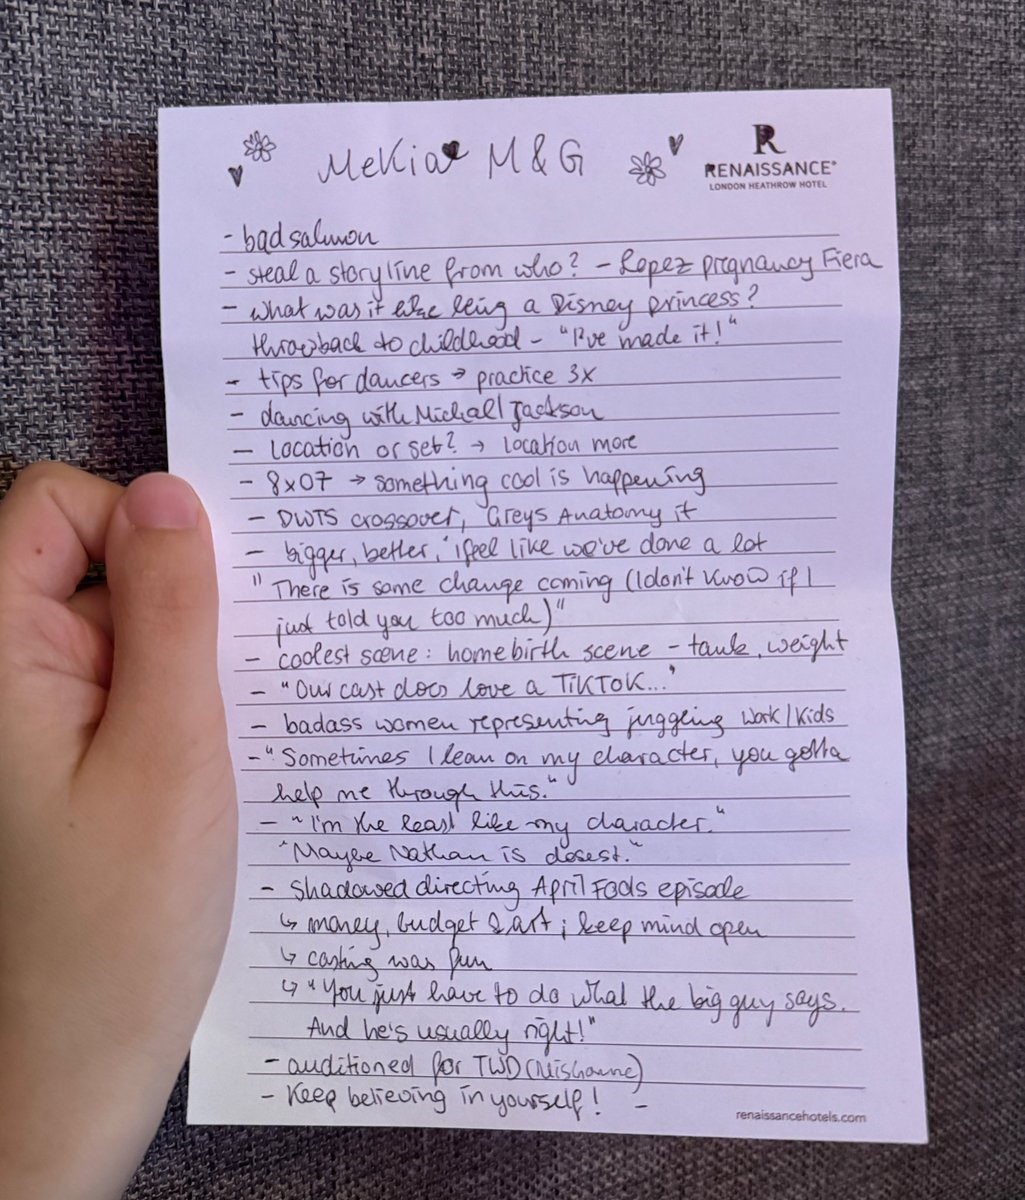 MeKia M & G
RENAISSANCE®
LONDON HEATHROW HOTEL
- bad salmon
- steal a storyline from who? - Lopez pregnancy Fiera
- what was it like being a Disney princess?
throwback to childhood - "I've made it!"
- tips for dancers → practice 3x
- dancing with Michall Jackson
- Location or set? → location more
- 8x07 → something cool is happening
- DWTS crossover, Greys Anatomy it
- bigger, better, "i feel like we've done a lot
"There is some change coming (I don't know if I
just told you too much)"
- coolest scene: homebirth scene - tank, weight
- "Our cast does love a TikTok..."
- badass women representing juggling work/kids
- "Sometimes I lean on my character, you gotta
help me through this."
- "I'm the least like my character."
"Maybe Nathan is closest."
- Shadowed directing April Fools episode
↳ money, budget & art; keep mind open
↳ casting was fun
↳ "You just have to do what the big guy says.
And he's usually right!"
- auditioned for TWD (Mishonne)
- Keep believing in yourself! -
renaissancehotels.com